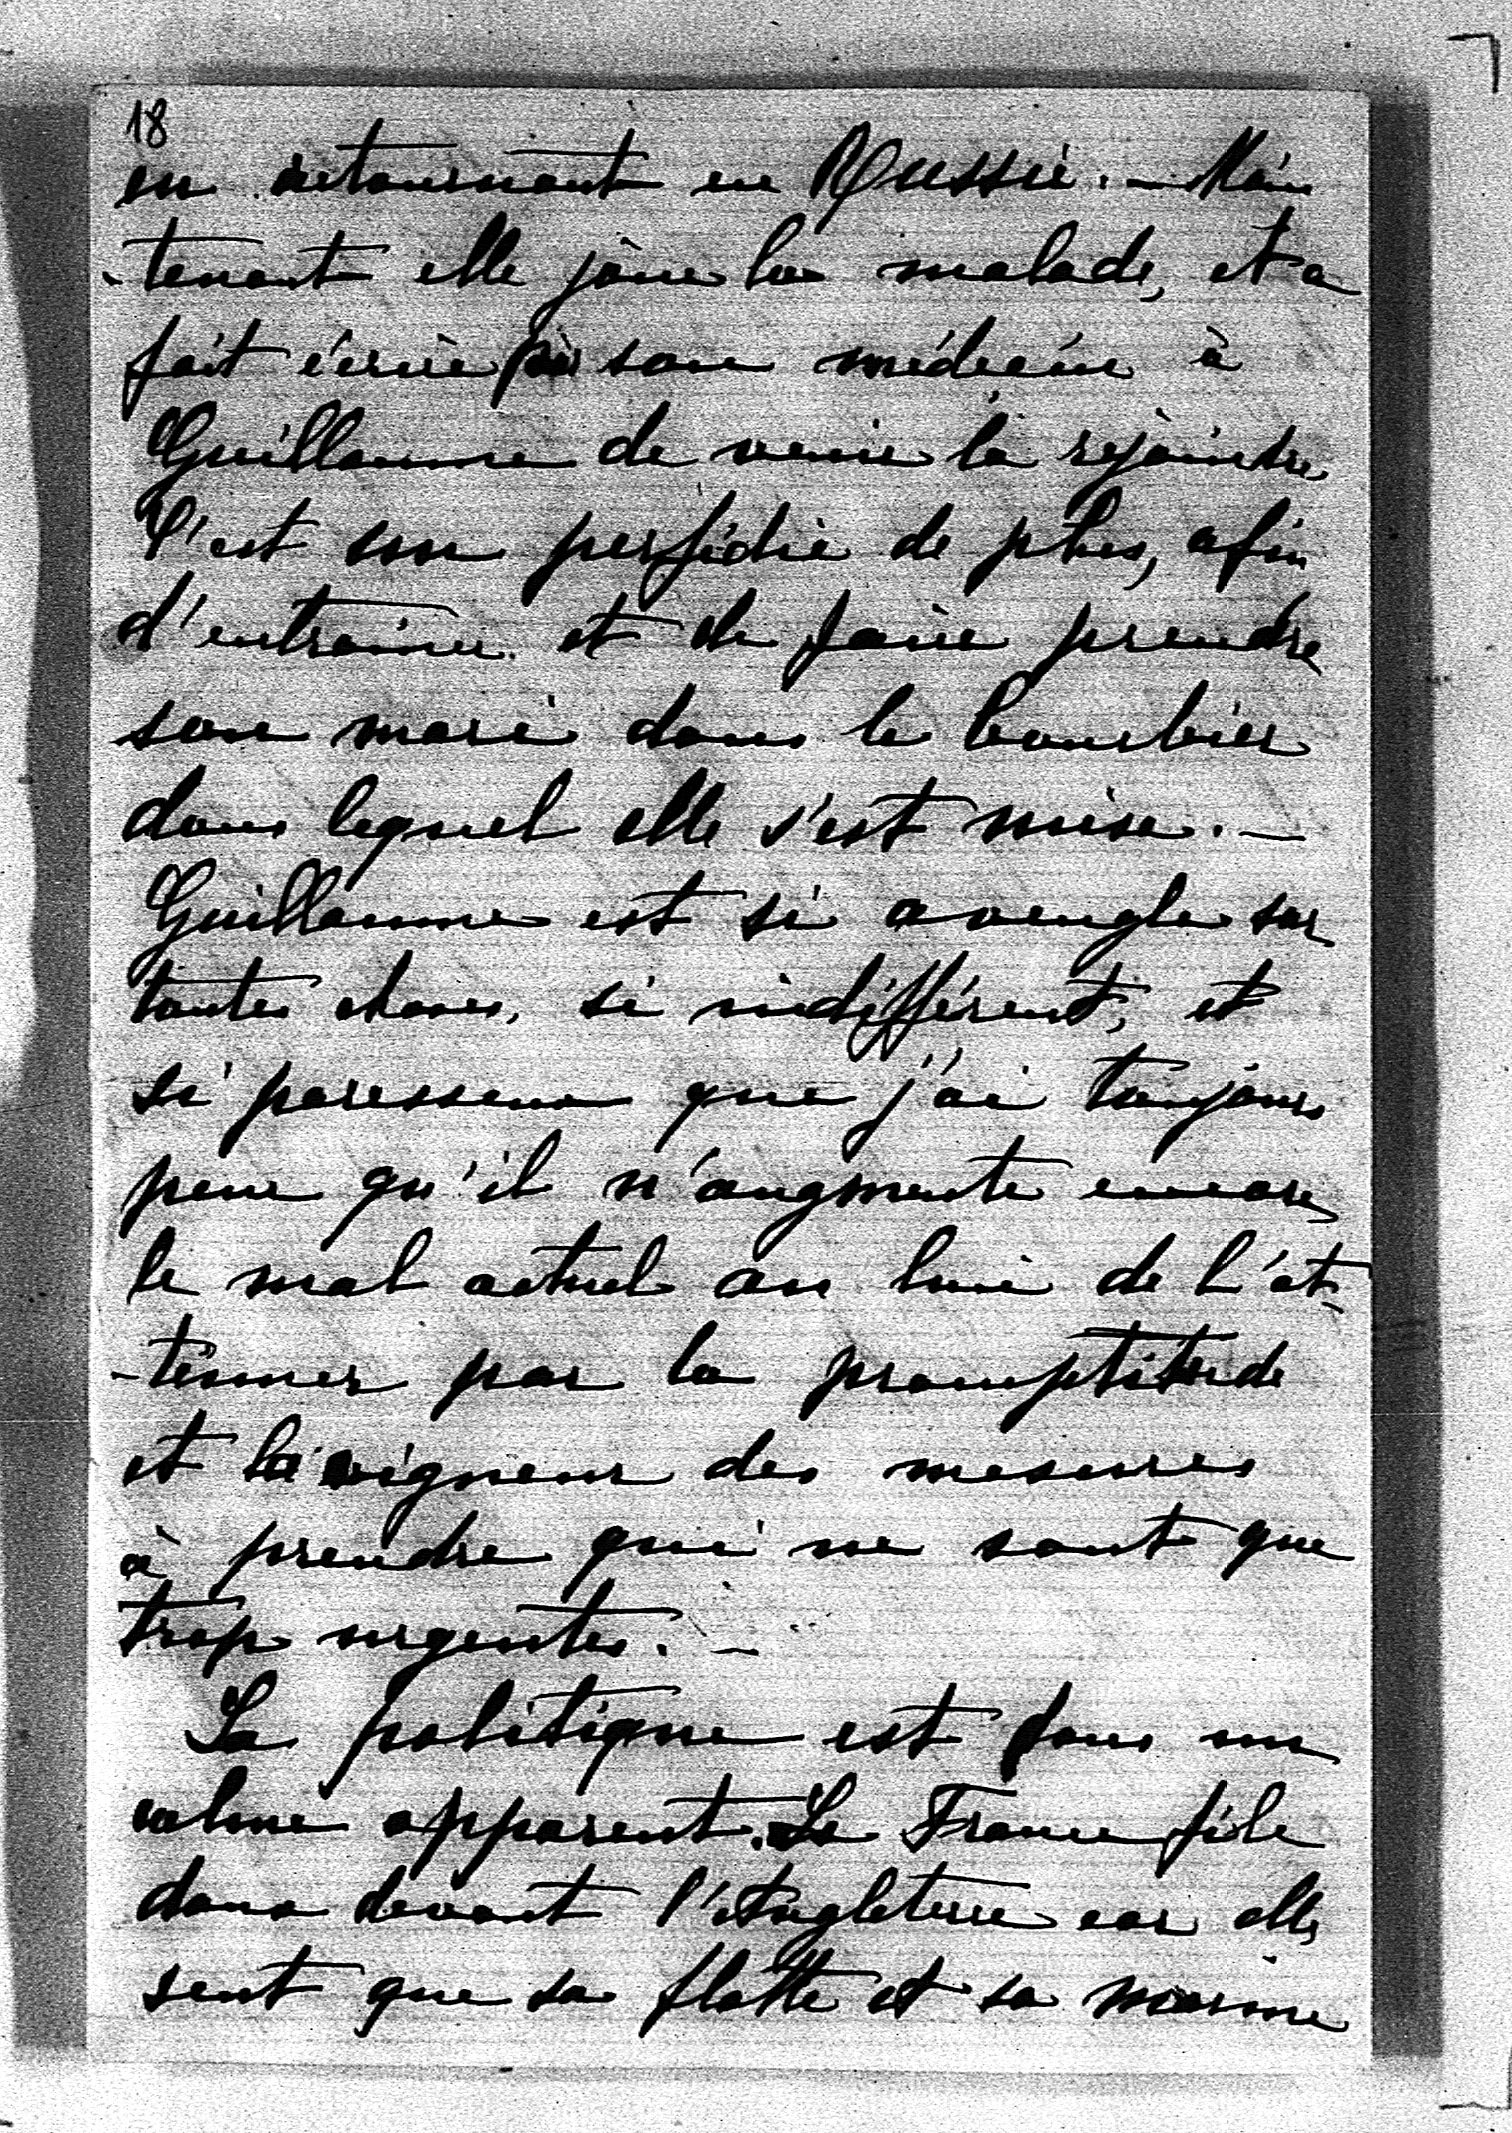 18
en retournant en Russie. — Main
-tenant elle joue la malade, et a
fait écrire par son médecin à
Guillaume de venir la rejoindre
C'est une perfidie de plus, afin
d'entrainer et de faire prendre
son mari dans le bourbier
dans lequel elle s'est mise. —
Guillaume est si aveugle sur
toutes choses, si indifférent, et
si paresseux que j'ai toujours
peur qu'il n'augmente encore
le mal actuel au lieu de l'at-
-ténuer par la promptitude
et la vigueur des mesures
à prendre qui ne sont que
trop urgentes. —
La politique est dans un
calme apparent. La France file
doux devant l'Angleterre car elle
sent que sa flotte et sa marine